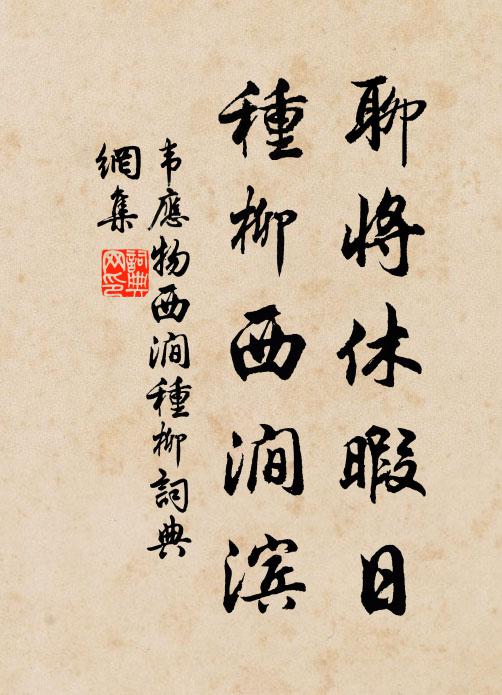 聊将休暇日
種柳西澗滨
韦應物西澗種柳詞典
網集
詞典
网印